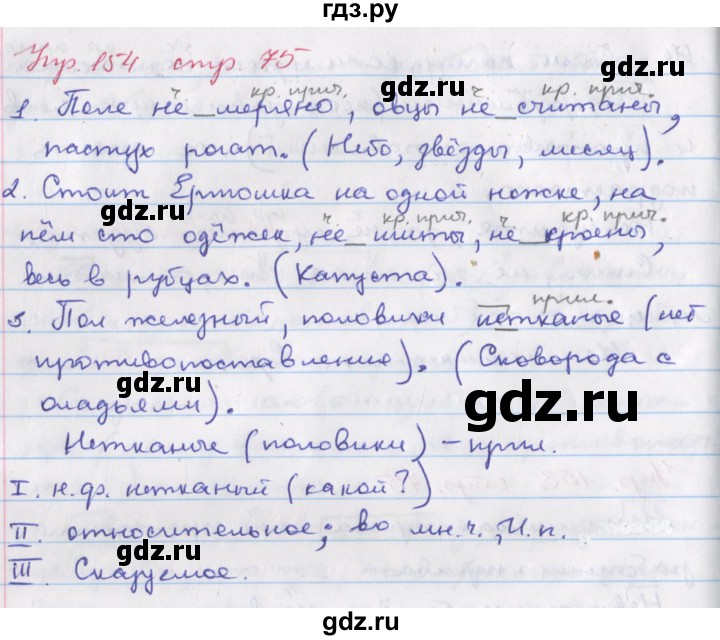 гдз.ру
Упр. 154 стр. 75
ч кр. прич. ч кр. прич.
1. Поле не_меряно, овцы не_считаны,
пастух рогат. (Небо, звёзды, месяц).
gdz.ru gdz.ru
2. Стоит Ермошка на одной ножке, на
ч кр. прич. ч кр. прич.
нём сто одёжек, не_шиты, не_кроены,
gdz.ru gdz.ru
весь в рубцах. (Капуста).
прил.
3. Пол железный, половики нетканые (нет
противопоставления). (Сковорода с
gdz.ru gdz.ru
оладьями).
Нетканые (половики) – прил.
I. н.ф. нетканый (какой?)
gdz.ru gdz.ru
II. относительное; во мн.ч., И.п.
III. Сказуемое.
gdz.ru gdz.ru